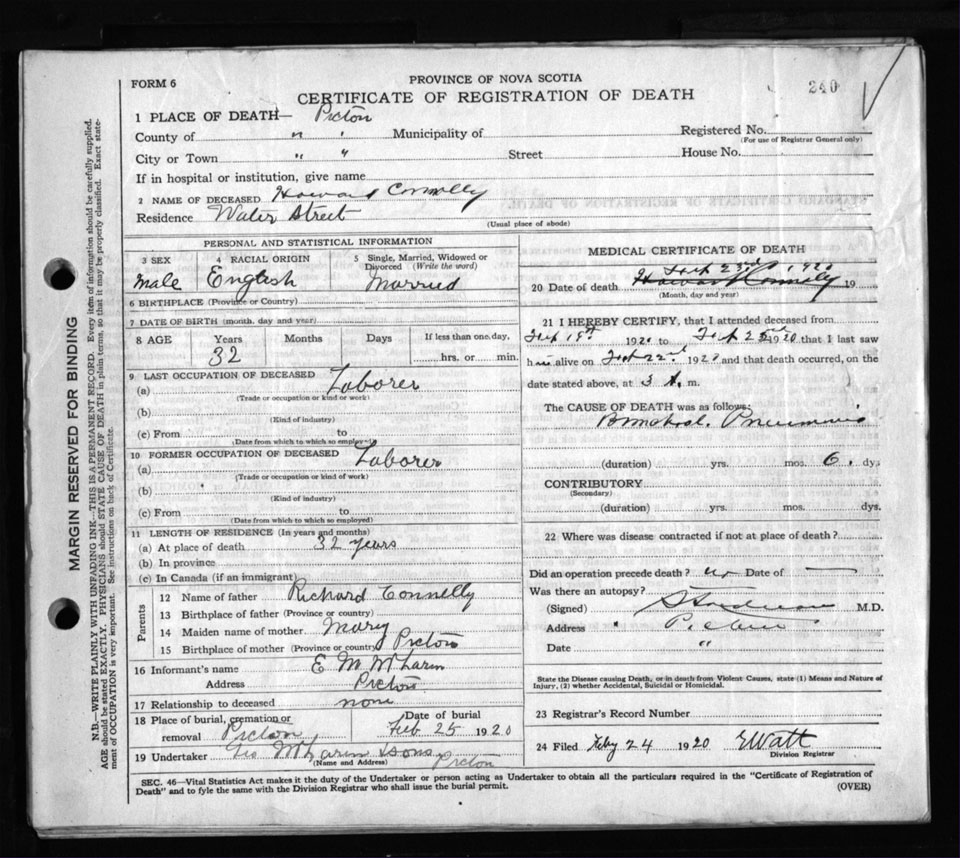 FORM 6
PROVINCE OF NOVA SCOTIA
240
CERTIFICATE OF REGISTRATION OF DEATH
1 PLACE OF DEATH— Pictou
County of " " Municipality of Registered No.
(For use of Registrar General only)
City or Town " " Street House No.
If in hospital or institution, give name
2 NAME OF DECEASED Howard Connolly
Residence Water Street
(Usual place of abode)
PERSONAL AND STATISTICAL INFORMATION
3 SEX 4 RACIAL ORIGIN 5 Single, Married, Widowed or Divorced (Write the word)
Male English Married
6 BIRTHPLACE (Province or Country)
7 DATE OF BIRTH (month, day and year)
8 AGE Years Months Days If less than one day,
32 hrs. or min.
9 LAST OCCUPATION OF DECEASED
(a) Laborer
(Trade or occupation or kind or work)
(b)
(Kind of industry)
(c) From
(Date from which to which so employed)
10 FORMER OCCUPATION OF DECEASED
(a) Laborer
(Trade or occupation or kind of work)
(b)
(Kind of industry)
(c) From
(Date from which to which so employed)
11 LENGTH OF RESIDENCE (In years and months)
(a) At place of death 32 years
(b) In province
(c) In Canada (if an immigrant)
Parents
12 Name of father Richard Connelly
13 Birthplace of father (Province or country)
14 Maiden name of mother Mary
15 Birthplace of mother (Province or country) Pictou
16 Informant's name E M
Address Pictou
17 Relationship to deceased none
18 Place of burial, cremation or removal Pictou Date of burial Feb 25 1920
19 Undertaker Geo & Sons Pictou
(Name and Address)
MEDICAL CERTIFICATE OF DEATH
20 Date of death Feb 23rd 1920 Howard Connelly 19
(Month, day and year)
21 I HEREBY CERTIFY, that I attended deceased from
Feb 19th 1920 to Feb 1920 that I last saw
him alive on Feb 22nd 1920 and that death occurred, on the
date stated above, at 3 A. m.
The CAUSE OF DEATH was as follows:
Bronchial Pneumonia
(duration) yrs. mos. 6. dys
CONTRIBUTORY
(Secondary)
(duration) yrs. mos. dys.
22 Where was disease contracted if not at place of death?
Did an operation precede death? no Date of —
Was there an autopsy?
(Signed) M.D.
Address " Pictou
Date "
State the Disease causing Death, or in death from Violent Causes, state (1) Means and Nature of
Injury, (2) whether Accidental, Suicidal or Homicidal.
23 Registrar's Record Number
24 Filed Feby 24 1920 E Watt
Division Registrar
SEC. 46—Vital Statistics Act makes it the duty of the Undertaker or person acting as Undertaker to obtain all the particulars required in the "Certificate of Registration of
Death" and to fyle the same with the Division Registrar who shall issue the burial permit.
(OVER)
MARGIN RESERVED FOR BINDING
N.B.—WRITE PLAINLY WITH UNFADING INK—THIS IS A PERMANENT RECORD. Every item of information should be carefully supplied.
AGE should be stated EXACTLY. PHYSICIANS should STATE CAUSE OF DEATH in plain terms, so that it may be properly classified. Exact state-
ment of OCCUPATION is very important. See instructions on back of Certificate.